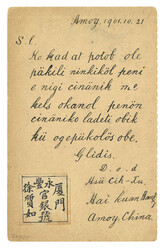 Amoy, 1901.10.21
S. l.
Ko kad at potob ole
päkeli ninkiköl peni
e nigi cinänik me
kels okanol penön
cinäniko ladeti obik
kü ogepükolös obe.
Glidis.
D. o. d
Hsü Cih-Xu.
Hai kuan Bank,
Amoy, China.
厦门
永官銀號
豐
徐質如